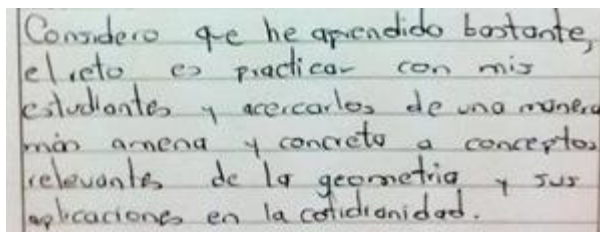 Considero que he aprendido bastante,
el reto es practicar con mis
estudiantes y acercarlos de una manera
más amena y concreta a conceptos
relevantes de la geometria y sus
aplicaciones en la cotidianidad.